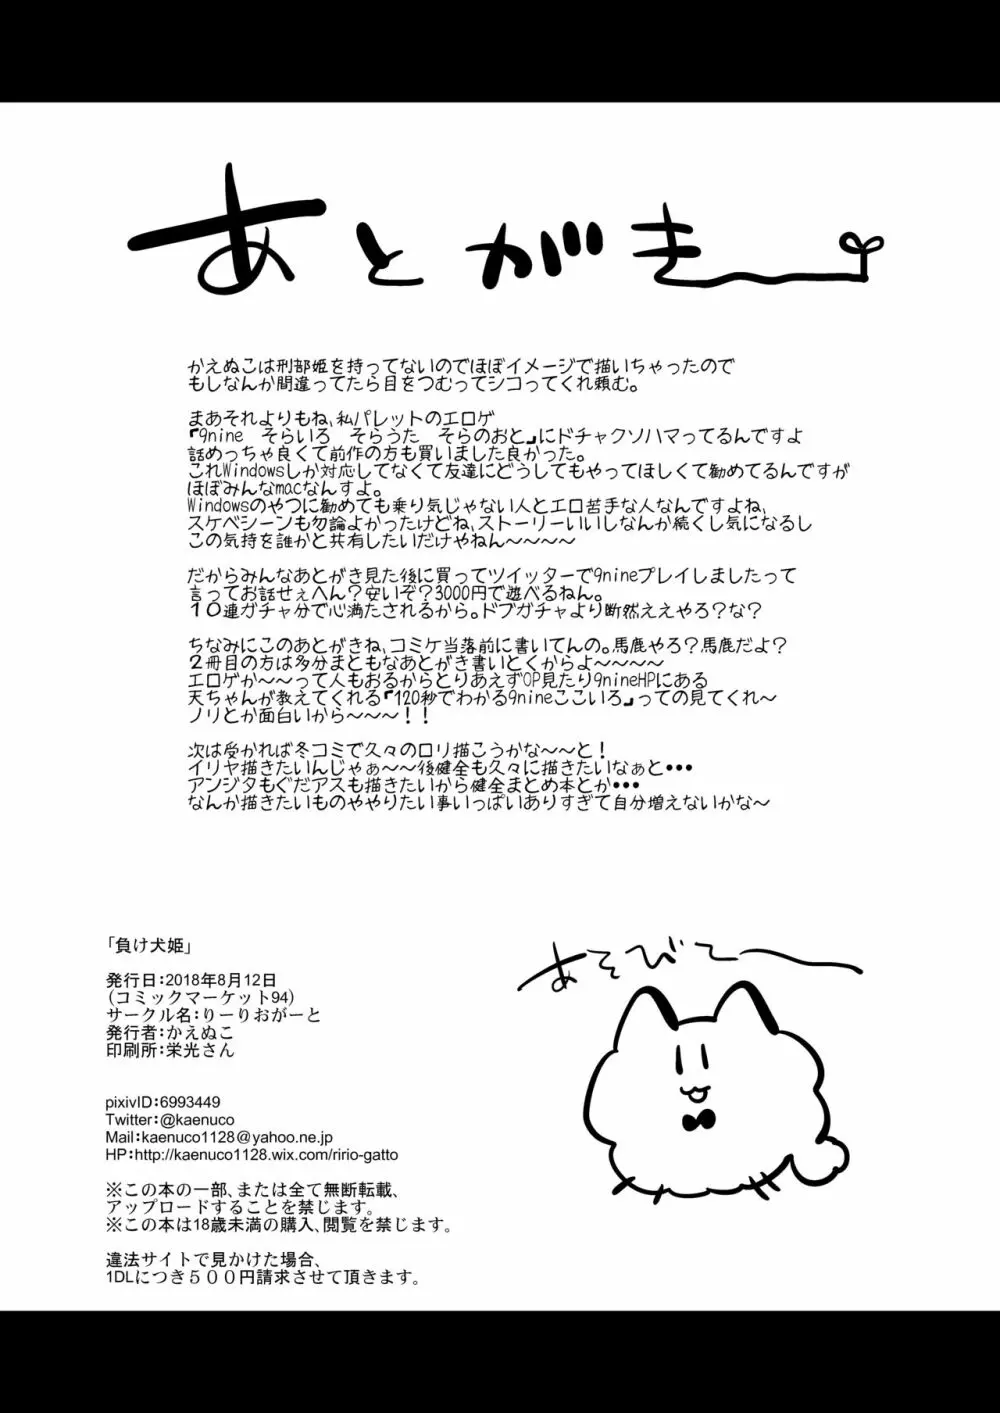 あとがき
かえぬこは刑部姫を持ってないのでほぼイメージで描いちゃったので
もしなんか間違ってたら目をつむってシコってくれ頼む。
まあそれよりもね、私パレットのエロゲ
『9nine　そらいろ　そらうた　そらのおと』にドチャクソハマってるんですよ
話めっちゃ良くて前作の方も買いました良かった。
これWindowsしか対応してなくて友達にどうしてもやってほしくて勧めてるんですが
ほぼみんなmacなんすよ。
Windowsのやつに勧めても乗り気じゃない人とエロ苦手な人なんですよね、
スケベシーンも勿論よかったけどね、ストーリーいいしなんか続くし気になるし
この気持を誰かと共有したいだけやねん～～～～
だからみんなあとがき見た後に買ってツイッターで9nineプレイしましたって
言ってお話せぇへん？安いぞ？3000円で遊べるねん。
１０連ガチャ分で心満たされるから。ドブガチャより断然ええやろ？な？
ちなみにこのあとがきね、コミケ当落前に書いてんの。馬鹿やろ？馬鹿だよ？
２冊目の方は多分まともなあとがき書いとくからよ～～～～
エロゲか～～って人もおるからとりあえずOP見たり9nineHPにある
天ちゃんが教えてくれる『120秒でわかる9nineここいろ』っての見てくれ～
ノリとか面白いから～～～！！
次は受かれば冬コミで久々のロリ描こうかな～～と！
イリヤ描きたいんじゃぁ～～後健全も久々に描きたいなぁと・・・
アンジタもぐだアスも描きたいから健全まとめ本とか・・・
なんか描きたいものややりたい事いっぱいありすぎて自分増えないかな～
「負け犬姫」
発行日：2018年8月12日
（コミックマーケット94）
サークル名：りーりおがーと
発行者：かえぬこ
印刷所：栄光さん
pixivID：6993449
Twitter：@kaenuco
Mail：kaenuco1128@yahoo.ne.jp
HP：http://kaenuco1128.wix.com/ririo-gatto
※この本の一部、または全て無断転載、
アップロードすることを禁じます。
※この本は18歳未満の購入、閲覧を禁じます。
違法サイトで見かけた場合、
1DLにつき５００円請求させて頂きます。
あそびて